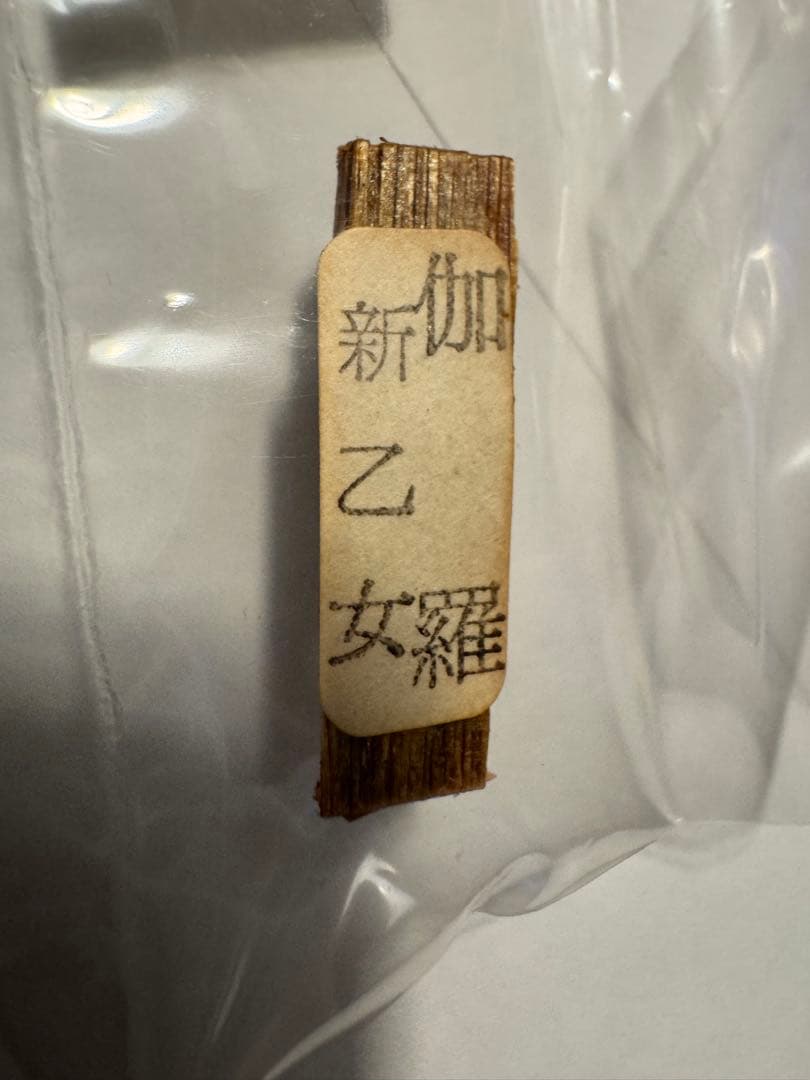 伽羅
新乙女